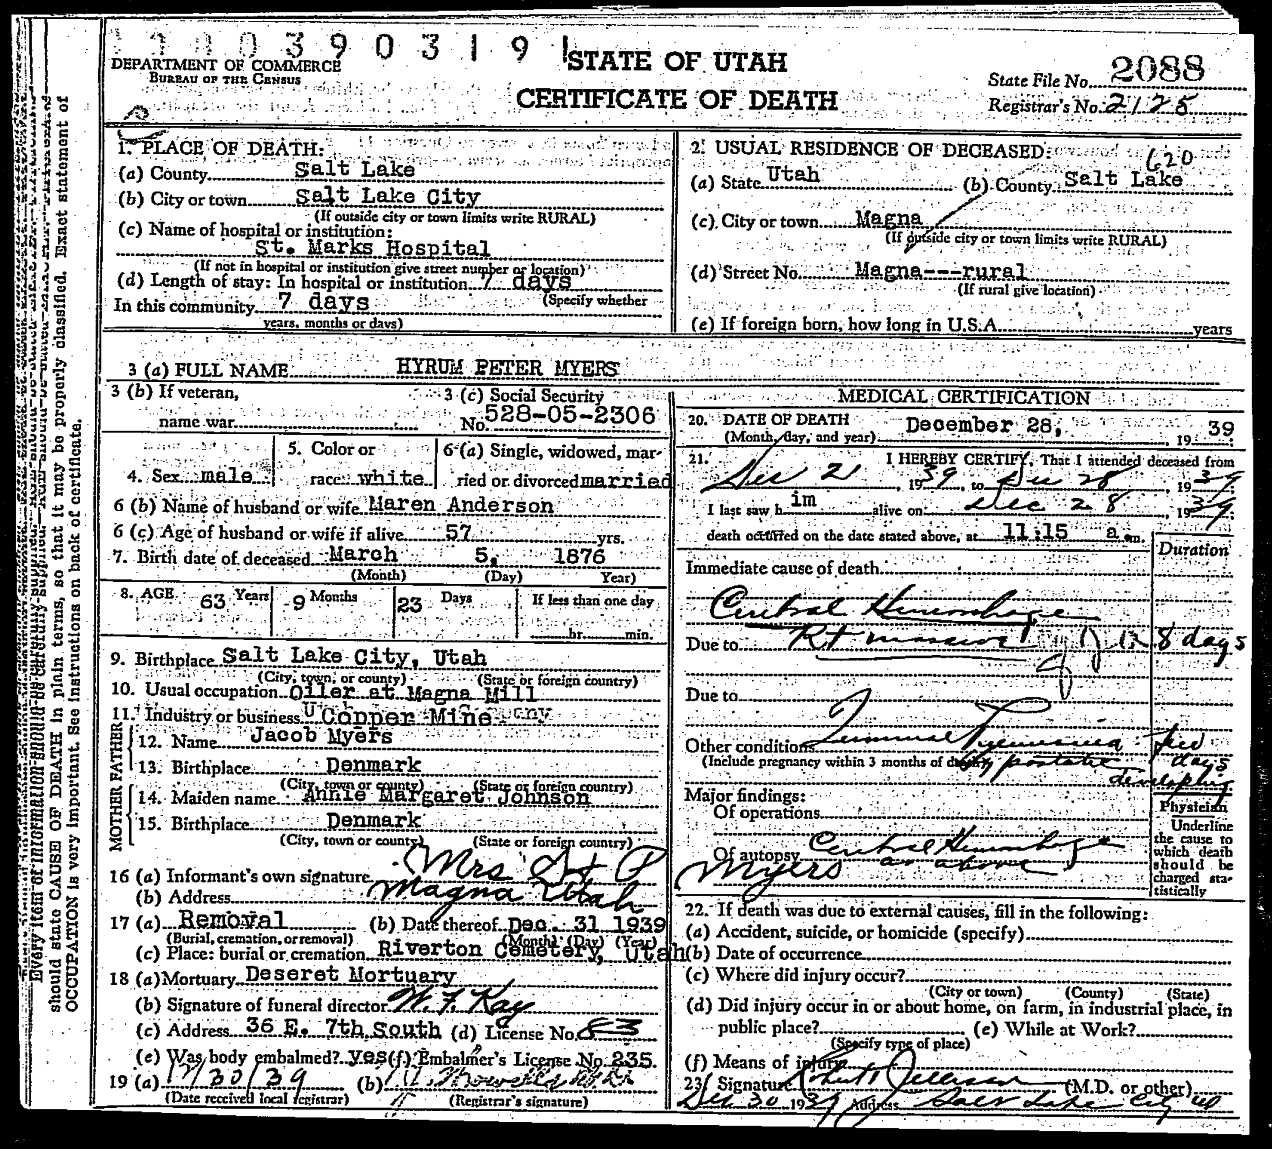 390319
DEPARTMENT OF COMMERCE
BUREAU OF THE CENSUS
STATE OF UTAH
CERTIFICATE OF DEATH
State File No. 2088
Registrar's No. 2125
1. PLACE OF DEATH:
(a) County Salt Lake
(b) City or town Salt Lake City
(If outside city or town limits write RURAL)
(c) Name of hospital or institution:
St. Marks Hospital
(If not in hospital or institution give street number or location)
(d) Length of stay: In hospital or institution 7 days
(Specify whether
In this community 7 days
years, months or days)
2. USUAL RESIDENCE OF DECEASED:
620
(a) State Utah (b) County Salt Lake
(c) City or town Magna
(If outside city or town limits write RURAL)
(d) Street No. Magna---rural
(If rural give location)
(e) If foreign born, how long in U.S.A. years
3 (a) FULL NAME HYRUM PETER MYERS
3 (b) If veteran,
name war
3 (c) Social Security
No. 528-05-2306
4. Sex male
5. Color or
race white
6 (a) Single, widowed, mar-
ried or divorced married
6 (b) Name of husband or wife Maren Anderson
6 (c) Age of husband or wife if alive 57 yrs.
7. Birth date of deceased March 5, 1876
(Month) (Day) Year)
8. AGE 63 Years 9 Months 23 Days If less than one day
hr. min.
9. Birthplace Salt Lake City, Utah
(City, town, or county) (State or foreign country)
10. Usual occupation Oiler at Magna Mill
11. Industry or business U Copper Mine cny
FATHER
12. Name Jacob Myers
13. Birthplace Denmark
(City, town or county) (State or foreign country)
MOTHER
14. Maiden name Annie Margaret Johnson
15. Birthplace Denmark
(City, town or county) (State or foreign country)
16 (a) Informant's own signature Mrs H P Myers
(b) Address Magna Utah
17 (a) Removal (b) Date thereof Dec. 31 1939
(Burial, cremation, or removal) (Month) (Day) (Year)
(c) Place: burial or cremation Riverton Cemetery, Utah
18 (a) Mortuary Deseret Mortuary
(b) Signature of funeral director W. F. Kay
(c) Address 36 E. 7th South (d) License No. 83
(e) Was body embalmed? yes (f) Embalmer's License No. 235
19 (a) 12/30/39 (b)
(Date received local registrar) (Registrar's signature)
MEDICAL CERTIFICATION
20. DATE OF DEATH
(Month, day, and year) December 28, 1939
21. I HEREBY CERTIFY, That I attended deceased from
Dec 21, 1939, to Dec 28, 1939
I last saw him alive on Dec 28, 1939
death occurred on the date stated above, at 11:15 a.m.
Duration
Immediate cause of death
Cerebral Hemorrhage
Due to Rt 8 days
Due to
Other conditions Terminal few days
(Include pregnancy within 3 months of
developing
Major findings:
Of operations
Of autopsy Cerebral Hemorrhage
as above
Physician
Underline
the cause to
which death
should be
charged sta-
tistically
22. If death was due to external causes, fill in the following:
(a) Accident, suicide, or homicide (specify)
(b) Date of occurrence
(c) Where did injury occur?
(City or town) (County) (State)
(d) Did injury occur in or about home, on farm, in industrial place, in
public place? (e) While at Work?
(Specify type of place)
(f) Means of injury
23. Signature (M.D. or other)
Dec 30 1939 Address Salt Lake City Ut
should state CAUSE OF DEATH in plain terms, so that it may be properly classified. Exact statement of
OCCUPATION is very important. See instructions on back of certificate.